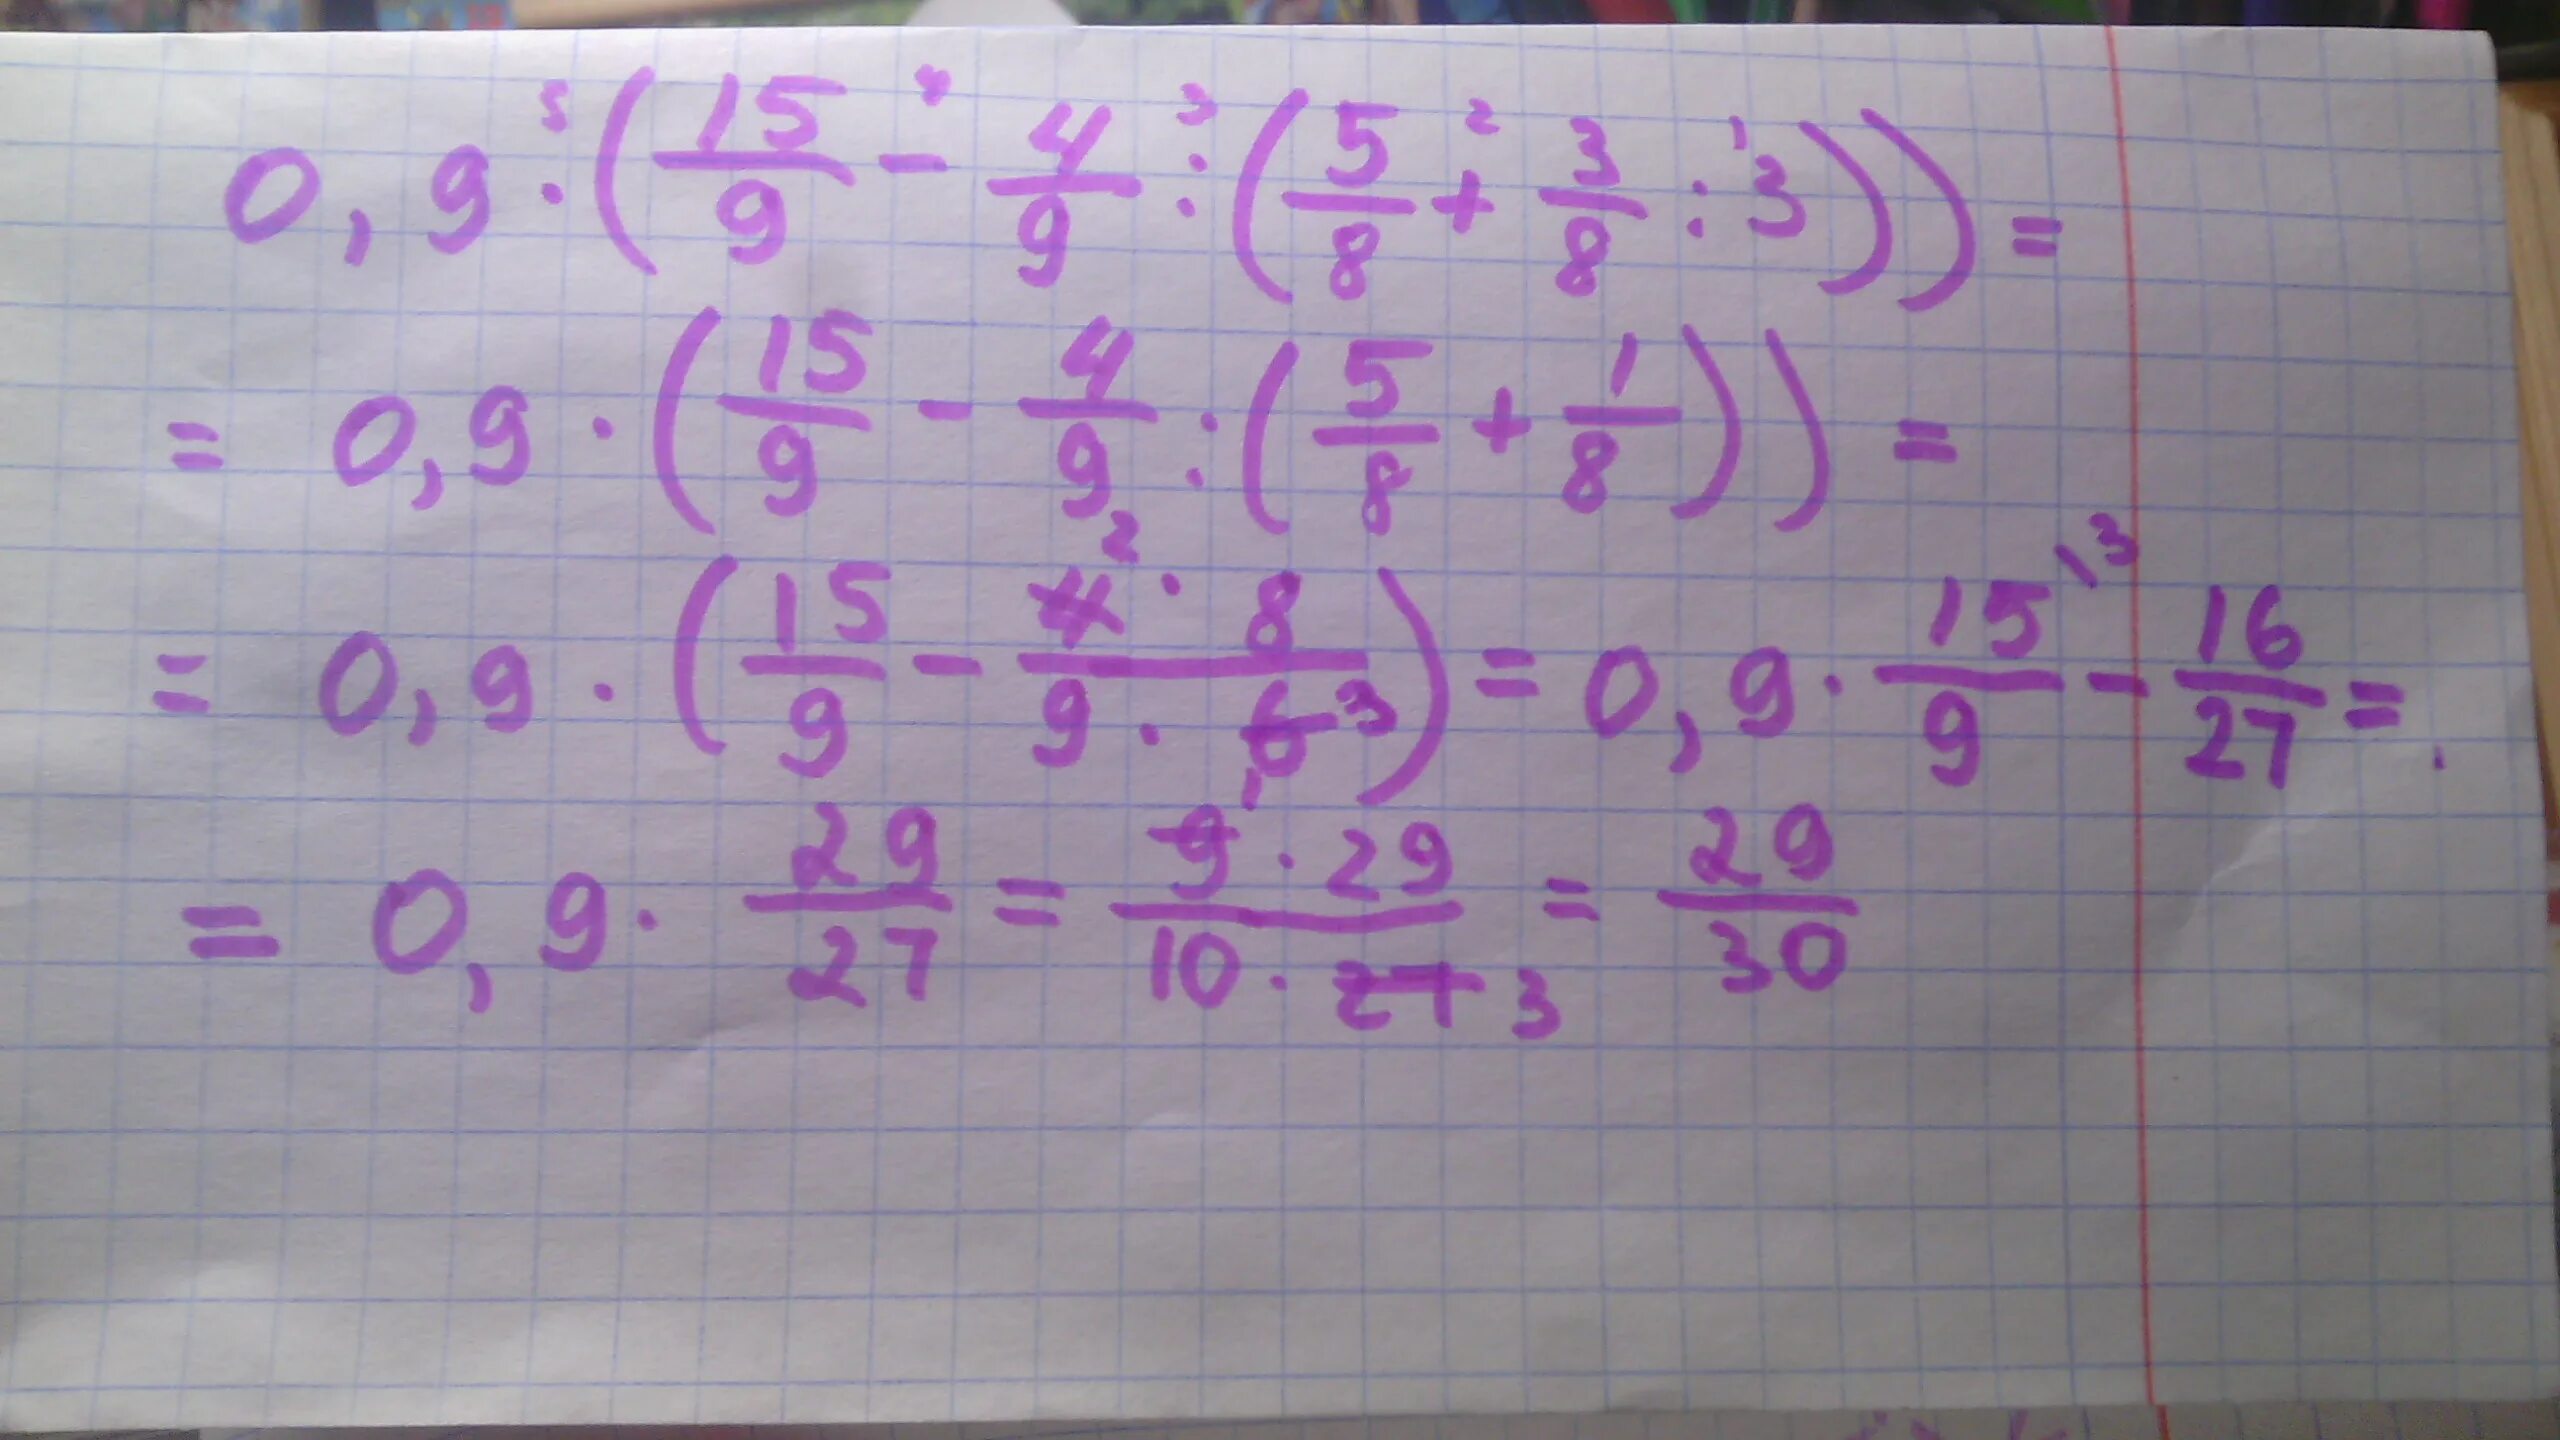 0,9 :⁵ (15/9 -⁴ 4/9 :³ (5/8 +² 3/8 :¹ 3)) =
= 0,9 · (15/9 - 4/9 : (5/8 + 1/8)) =
= 0,9 · (15/9 - 4² · 8 / 9 · 6³) = 0,9 · 15\³/9 - 16/27 =
= 0,9 · 29/27 = 9¹ · 29 / 10 · 27 3 = 29/30